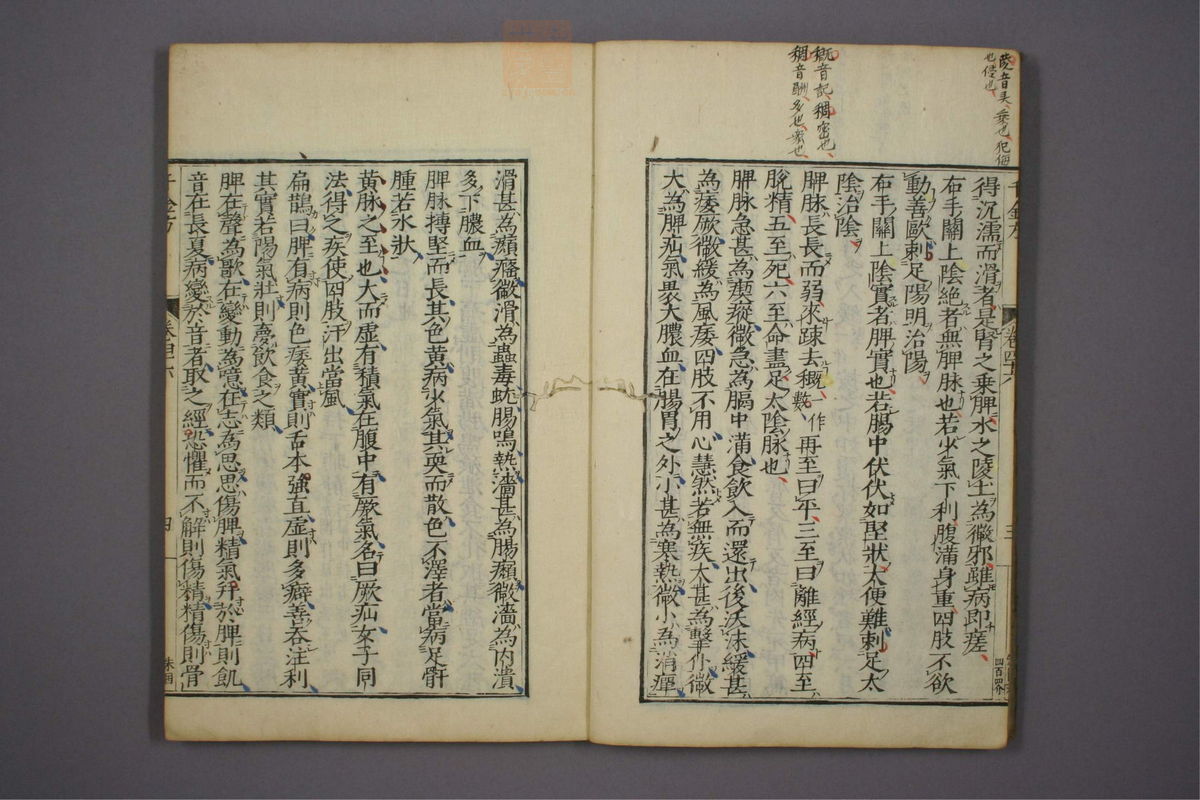 得沉濡而滑者是腎之乗脾水之陵土為微邪雖病即瘥
右手關上陰絶者無脾脉也若少氣下利腹滿身重四肢不欲
動善歐刺足陽明治陽
右手關上陰實者脾實也若腸中伏伏如堅狀大便難刺足太
陰治陰
脾脉長長而弱來踈去穊一作數再至曰平三至曰離經病四至
脫精五至死六至命盡足太陰脉也
脾脉急甚為瘈瘲微急為膈中滿食飲入而還出後沃沫緩甚
為痿厥微緩為風痿四肢不用心慧然若無疾大甚為擊仆微
大為脾疝氣畏大膿血在腸胃之外小甚為寒熱微小為消癉
滑甚為癲癃微滑為蟲毒蚘腸鳴熱濇甚為腸癲微濇為内潰
多下膿血
脾脉搏堅而長其色黃病少氣其耎而散色不澤者當病足䯒
腫若水狀
黃脉之至也大而虛有積氣在腹中有厥氣名曰厥疝女子同
法得之疾使四肢汗出當風
扁鵲曰脾有病則色痿黃實則舌本強直虛則多癖善吞注利
其實若陽氣壯則夢飲食之類
脾在聲為歌在變動為噫在志為思思傷脾精氣并於脾則飢
音在長夏病變於音者取之經恐懼而不解則傷精精傷則骨
穊音記稠密也
稠音酬多也密也
卷四十六
三
四